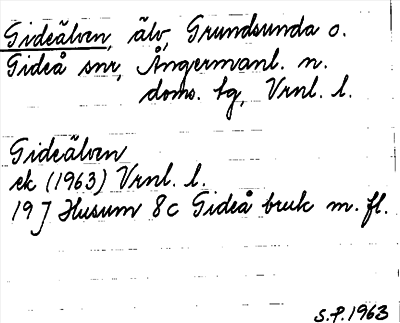 Gideälven, älv, Grundsunda o.
Gideå snr, Ångermanl. n.
doms. tg, Vrnl. l.
Gideälven
ek (1963) Vrnl. l.
19 J Husum 8c Gideå bruk m. fl.
S.P. 1963